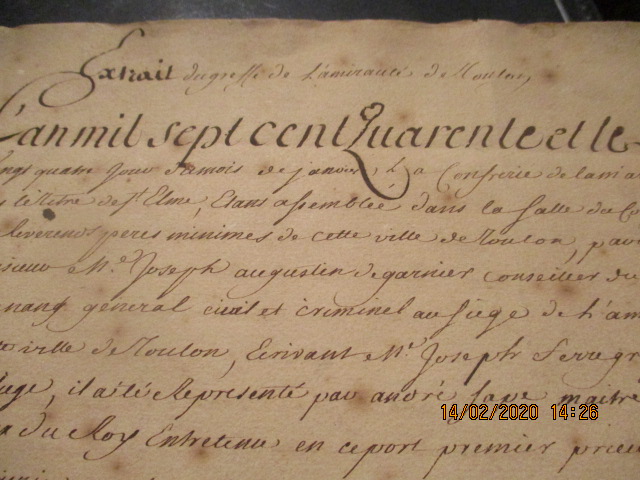 Extrait du greffe de l'amirauté de Toulon,
L'an mil sept cent Quarente et le
ngt quatre Jour du mois de janvier, La Confrerie de la ma
le titre de St. Elme, Etans assemblée dans la salle du
Reverends peres minimes de cette ville de Toulon, pav
sieur Me. Joseph augustin de garnier Conseiller du
nant general civil et criminel au siege de L'am
ville de Toulon, Ecrivant Mr. Joseph Serre gr
il a été Representé pav andré maitre
du Roy Entretenu en ce port premier prieu
14/02/2020 14:26